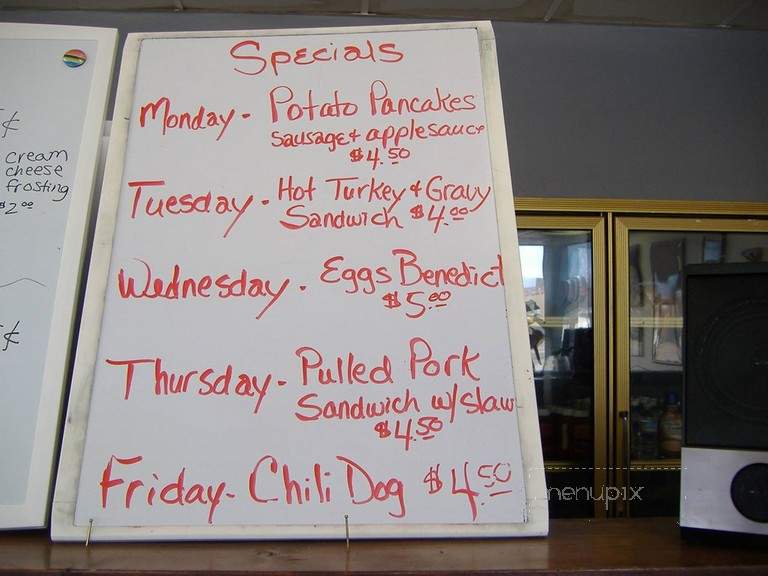 ¢
cream
cheese
frosting
$2.00
¢
Specials
Monday - Potato Pancakes
sausage + applesauce
$4.50
Tuesday - Hot Turkey + Gravy
Sandwich $4.00
Wednesday - Eggs Benedict
$5.00
Thursday - Pulled Pork
Sandwich w/slaw
$4.50
Friday - Chili Dog $4.50
menupix